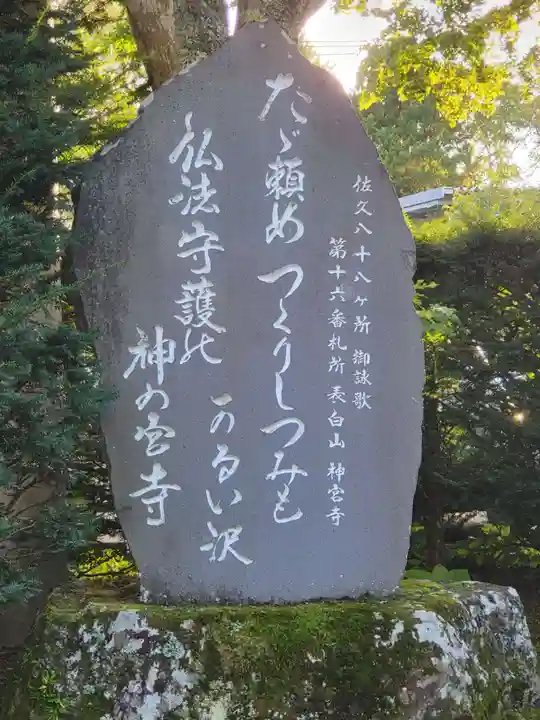 佐久八十八ヶ所 御詠歌
第十六番札所 表白山 神宮寺
たゞ頼め つくりしつみも
のるい訳
仏法守護の
神の宮寺